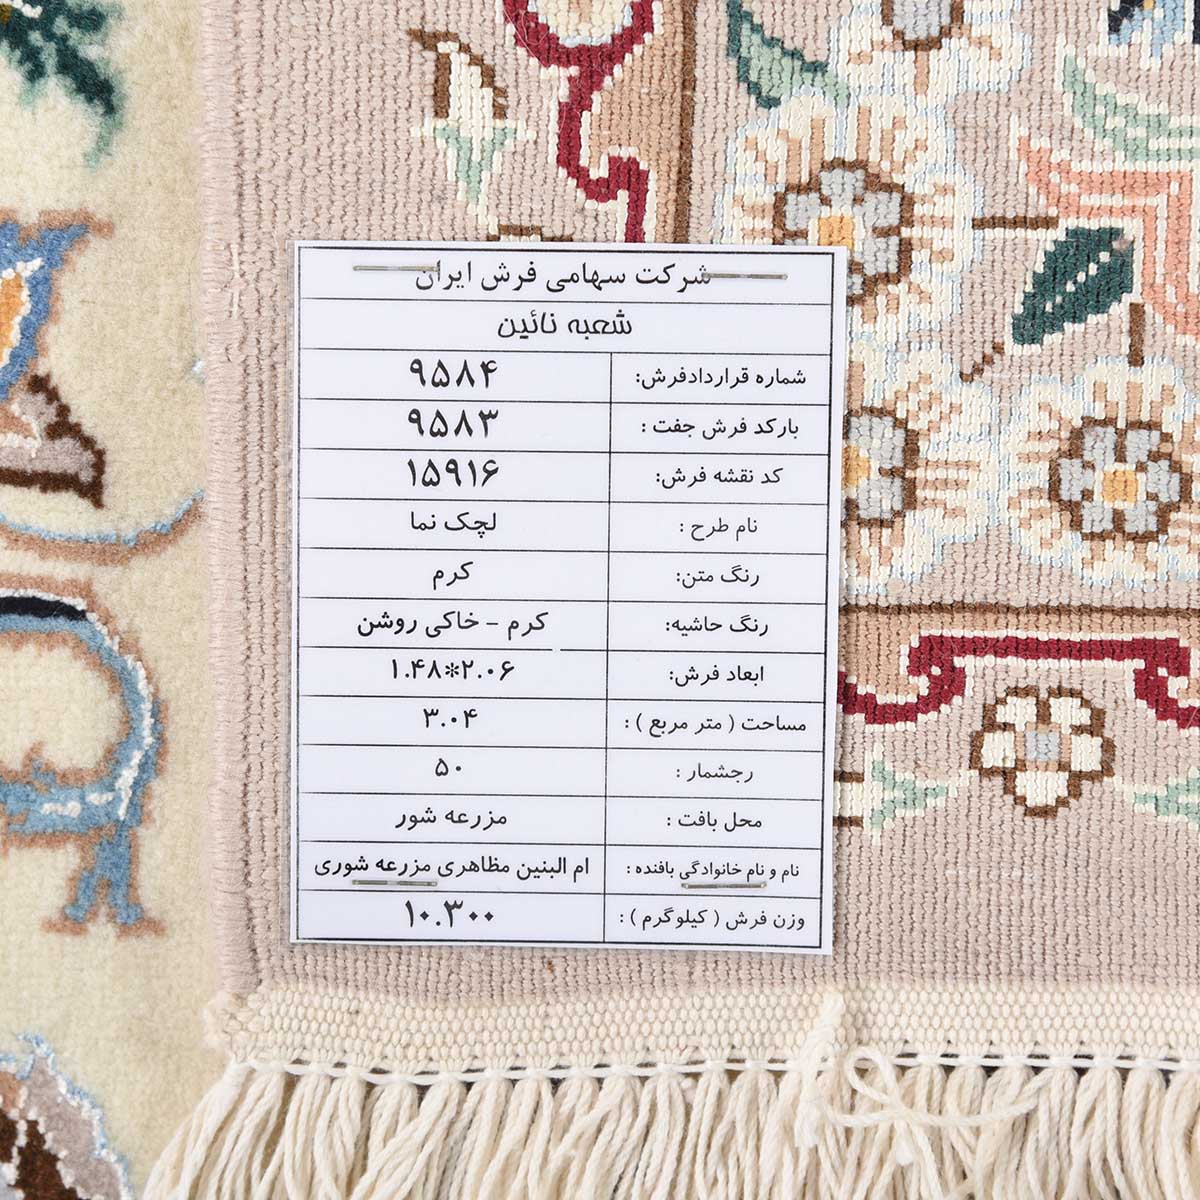 شرکت سهامی فرش ایران
شعبه نائین
شماره قراردادفرش: ۹۵۸۴
بارکد فرش جفت : ۹۵۸۳
کد نقشه فرش: ۱۵۹۱۶
نام طرح : لچک نما
رنگ متن: کرم
رنگ حاشیه: کرم - خاکی روشن
ابعاد فرش: ۱.۴۸*۲.۰۶
مساحت ( متر مربع ) : ۳.۰۴
رجشمار : ۵۰
محل بافت : مزرعه شور
نام و نام خانوادگی بافنده : ام البنین مظاهری مزرعه شوری
وزن فرش ( کیلوگرم ) : ۱۰.۳۰۰